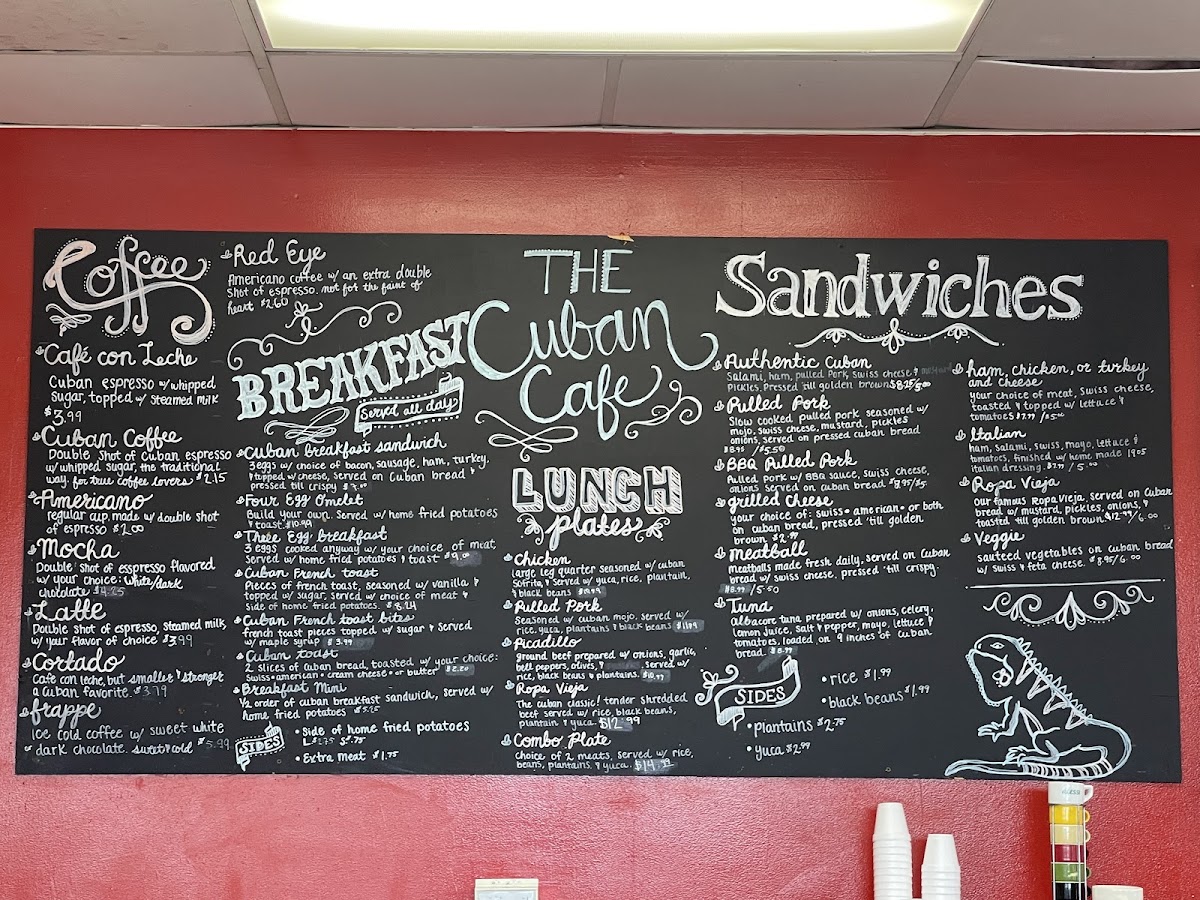 Coffee
Café con Leche
Cuban espresso w/ whipped
sugar, topped w/ steamed milk
$3.99
Cuban Coffee
Double shot of Cuban espresso
w/ whipped sugar, the traditional
way. for true coffee lovers $2.15
Americano
regular cup made w/ double shot
of espresso $2.00
Mocha
Double shot of esspresso flavored
w/ your choice: white/dark
chocolate $4.25
Latte
Double shot of espresso, steamed milk,
w/ your flavor of choice $3.99
Cortado
Cafe con leche, but smaller & stronger
a Cuban favorite. $3.79
frappe
ice cold coffee w/ sweet white
or dark chocolate. sweet & cold $5.99
Red Eye
Americano coffee w/ an extra double
shot of espresso. not for the faint of
heart $2.60
BREAKFAST
Served all day
Cuban breakfast sandwich
3 eggs w/ choice of bacon, sausage, ham, turkey,
& topped w/ cheese, served on Cuban bread &
pressed till crispy
Four Egg Omelet
Build your own. Served w/ home fried potatoes
& toast. $10.99
Three Egg breakfast
3 eggs cooked anyway w/ your choice of meat,
served w/ home fried potatoes & toast $9.00
Cuban French toast
Pieces of french toast, seasoned w/ vanilla &
topped w/ sugar, served w/ choice of meat &
side of home fried potatoes. $8.24
Cuban French toast bites
french toast pieces topped w/ sugar & served
w/ maple syrup $3.99
Cuban Toast
2 slices of Cuban bread, toasted w/ your choice:
swiss • american • cream cheese • or butter $2.20
Breakfast Mini
1/2 order of cuban breakfast sandwich, served w/
home fried potatoes $5.25
SIDES
• Side of home fried potatoes
• Extra Meat $1.75
THE
Cuban
Cafe
LUNCH
plates
Chicken
large leg quarter seasoned w/ cuban
sofrito, & served w/ yuca, rice, plantain,
& black beans $10.99
Pulled Pork
Seasoned w/ cuban mojo, served w/
rice, yuca, plantains & black beans $11.99
Picadillo
ground beef prepared w/ onions, garlic,
bell peppers, olives, & served w/
rice, black beans & plantains. $10.99
Ropa Vieja
The cuban classic! tender shredded
beef served w/ rice, black beans,
plantain & yuca. $12.99
Combo Plate
Choice of 2 meats, served w/ rice,
beans, plantains, & yuca. $14.99
Sandwiches
Authentic Cuban
Salami, ham, pulled Pork, swiss cheese & mustard
Pickles, pressed 'till golden brown $8.25/5.00
Pulled Pork
Slow cooked pulled pork seasoned w/
mojo, swiss cheese, mustard, pickles
onions, served on pressed cuban bread
$8.95 /$5.50
BBQ Pulled Pork
Pulled pork w/ BBQ sauce, swiss cheese,
onions served on cuban bread $8.95/$5.
grilled cheese
your choice of: swiss • american • or both
on cuban bread, pressed 'till golden
brown $2.99
meatball
meatballs made fresh daily, served on Cuban
bread w/ swiss cheese, pressed 'till crispy.
$8.99 /5.50
Tuna
albacore tuna prepared w/ onions, celery,
lemon juice, salt & pepper, mayo, lettuce &
tomatoes, loaded on 9 inches of Cuban
bread. $8.99
SIDES
• rice $1.99
• black beans $1.99
• plantains $2.75
• yuca $2.99
ham, chicken, or turkey
and cheese
your choice of meat, swiss cheese,
toasted & topped w/ lettuce &
tomatoes $7.99 /$5.00
Italian
ham, salami, swiss, mayo, lettuce &
tomatoes, finished w/ home made 1905
italian dressing. $7.99 / 5.00
Ropa Vieja
our famous Ropa Vieja, served on Cuban
bread w/ mustard, pickles, onions, &
toasted till golden brown. $12.99/6.00
Veggie
sauteed vegetables on Cuban bread
w/ swiss & feta cheese. $8.95/6.00